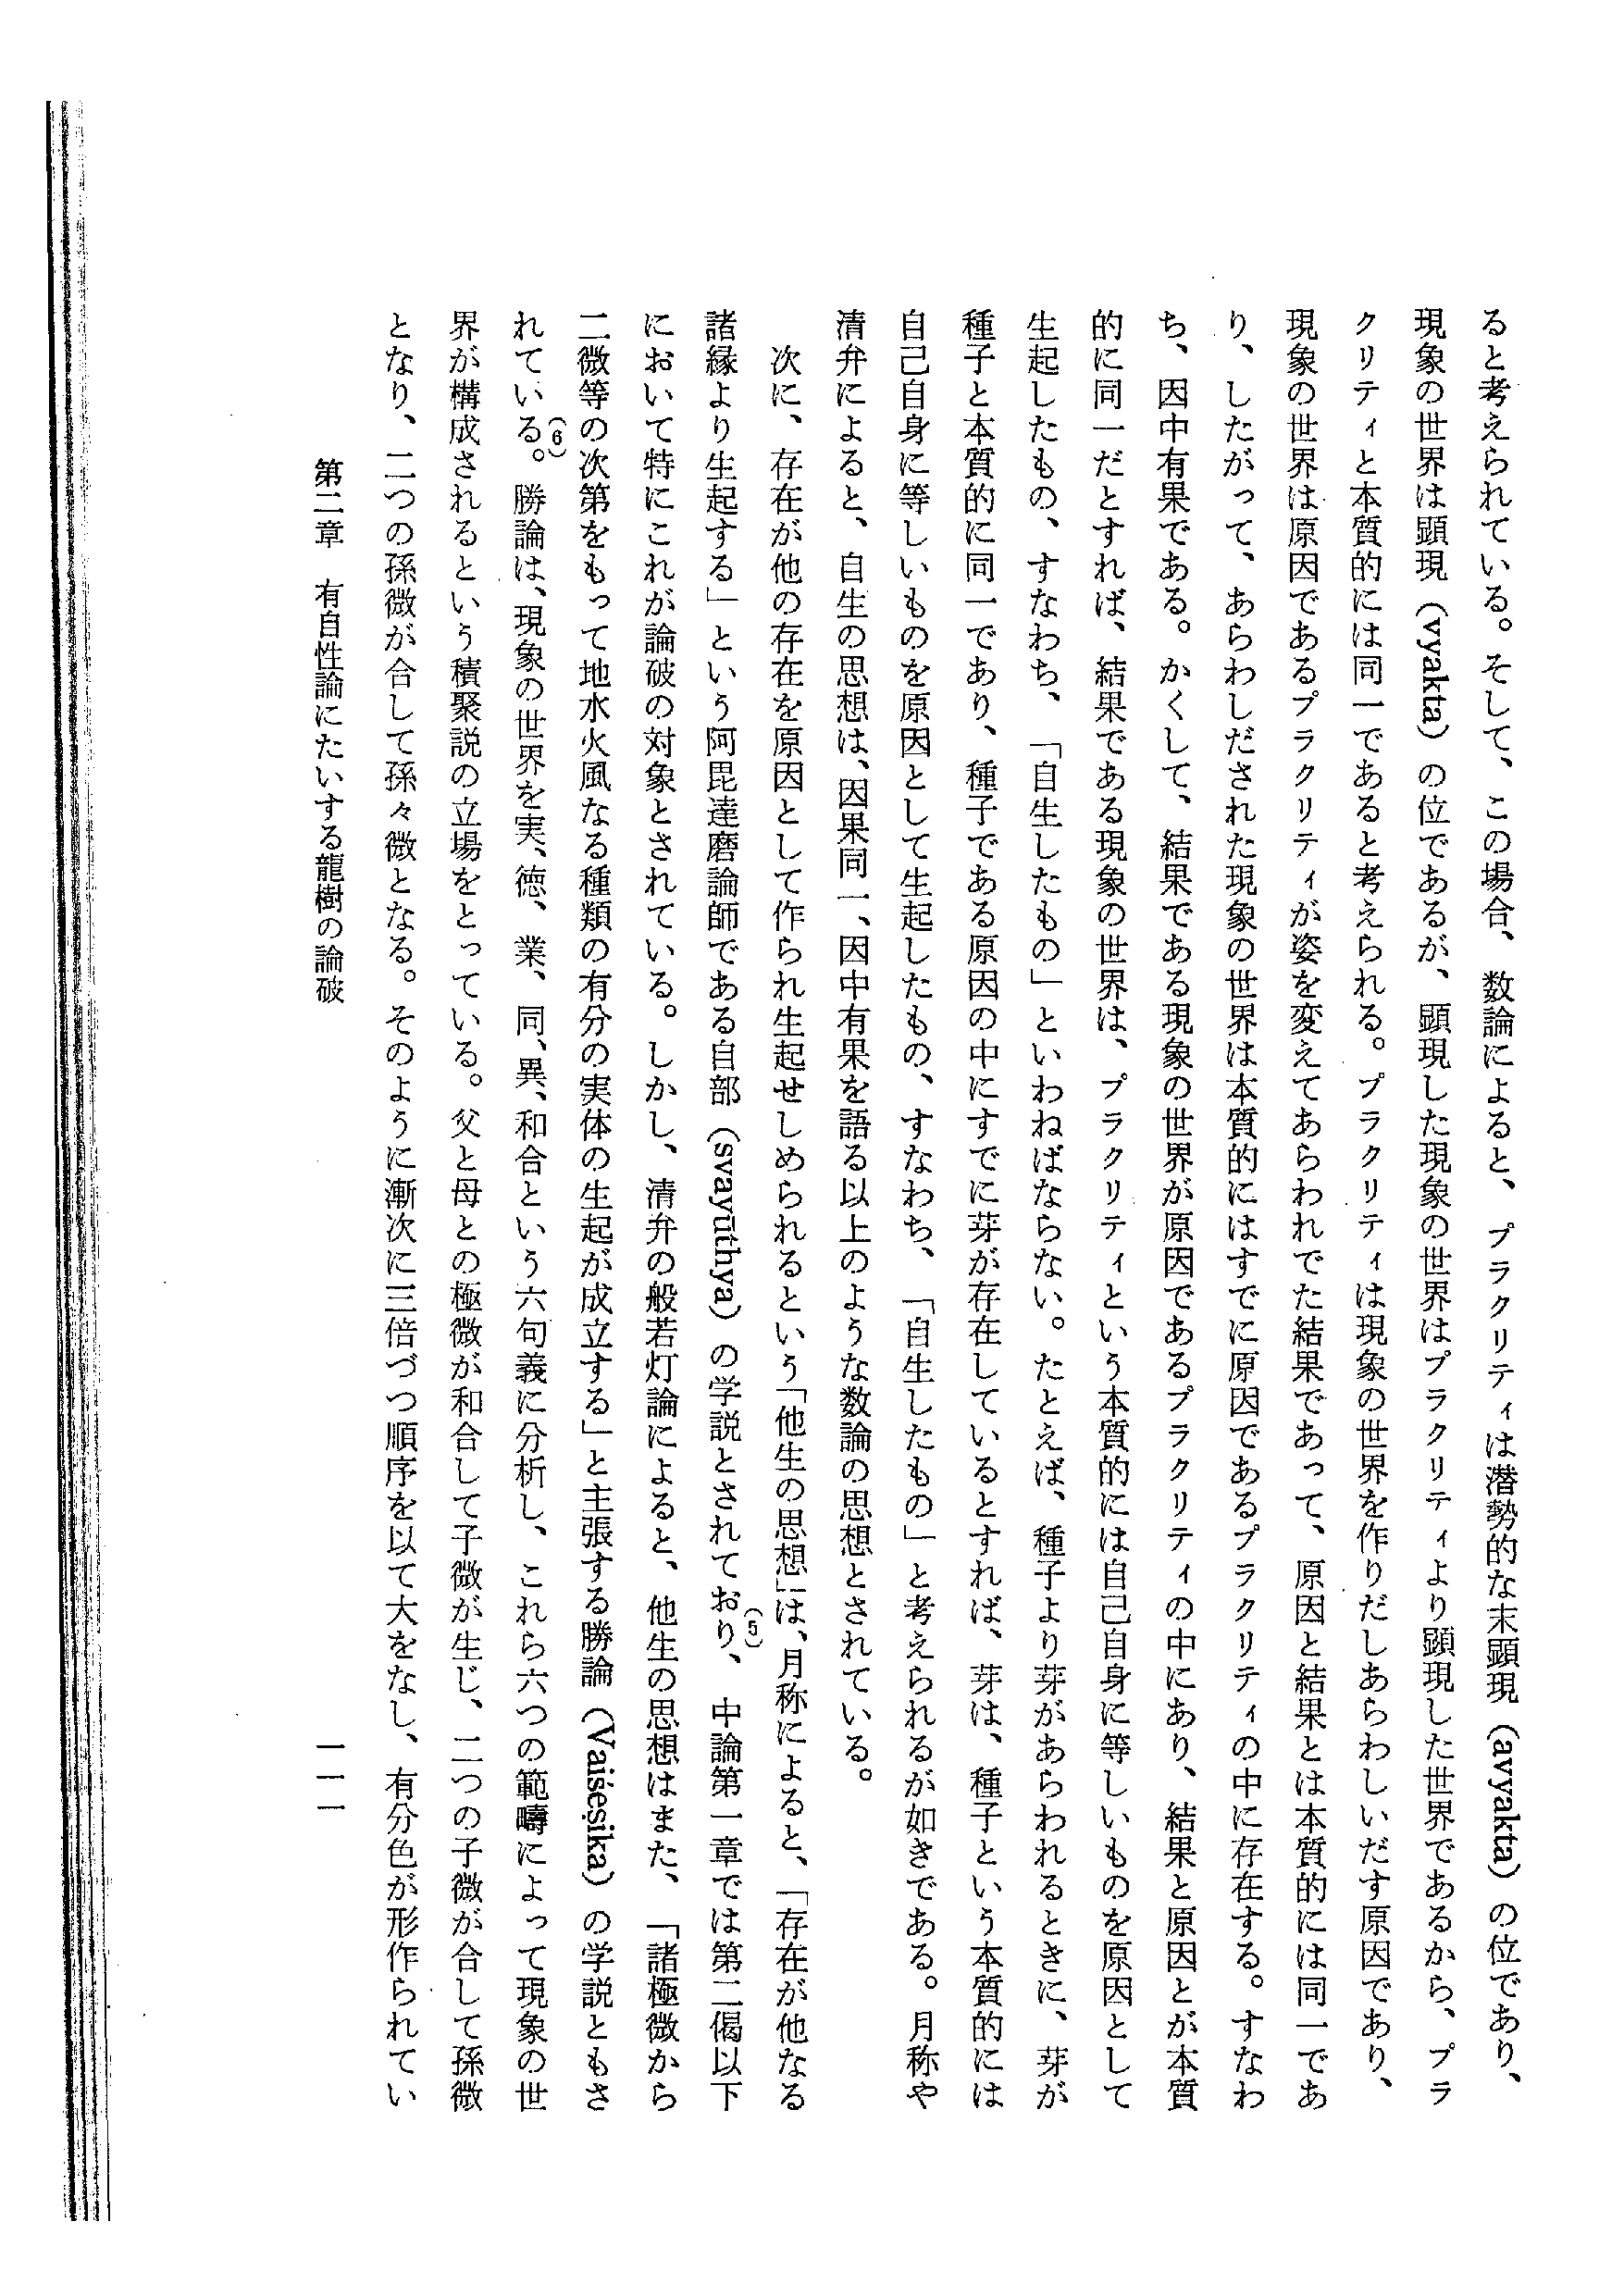 ると考えられている。そして、この場合、数論によると、プラクリティは潜勢的な末顕現（avyakta）の位であり、
現象の世界は顕現（vyakta）の位であるが、顕現した現象の世界はプラクリティより顕現した世界であるから、プラ
クリティと本質的には同一であると考えられる。プラクリティは現象の世界を作りだしあらわしいだす原因であり、
現象の世界は原因であるプラクリティが姿を変えてあらわれでた結果であって、原因と結果とは本質的には同一であ
り、したがって、あらわしだされた現象の世界は本質的にはすでに原因であるプラクリティの中に存在する。すなわ
ち、因中有果である。かくして、結果である現象の世界が原因であるプラクリティの中にあり、結果と原因とが本質
的に同一だとすれば、結果である現象の世界は、プラクリティという本質的には自己自身に等しいものを原因として
生起したもの、すなわち、「自生したもの」といわねばならない。たとえば、種子より芽があらわれるときに、芽が
種子と本質的に同一であり、種子である原因の中にすでに芽が存在しているとすれば、芽は、種子という本質的には
自己自身に等しいものを原因として生起したもの、すなわち、「自生したもの」と考えられるが如きである。月称や
清弁によると、自生の思想は、因果同一、因中有果を語る以上のような数論の思想とされている。
次に、存在が他の存在を原因として作られ生起せしめられるという「他生の思想」は、月称によると、「存在が他なる
諸縁より生起する」という阿毘達磨論師である自部（svayūthya）の学説とされており、(5)中論第一章では第二偈以下
において特にこれが論破の対象とされている。しかし、清弁の般若灯論によると、他生の思想はまた、「諸極微から
二微等の次第をもって地水火風なる種類の有分の実体の生起が成立する」と主張する勝論（Vaiśeṣika）の学説ともさ
れている。(6)勝論は、現象の世界を実、徳、業、同、異、和合という六句義に分析し、これら六つの範疇によって現象の世
界が構成されるという積聚説の立場をとっている。父と母との極微が和合して子微が生じ、二つの子微が合して孫微
となり、二つの孫微が合して孫々微となる。そのように漸次に三倍づつ順序を以て大をなし、有分色が形作られてい
第二章　有自性論にたいする龍樹の論破
一一一